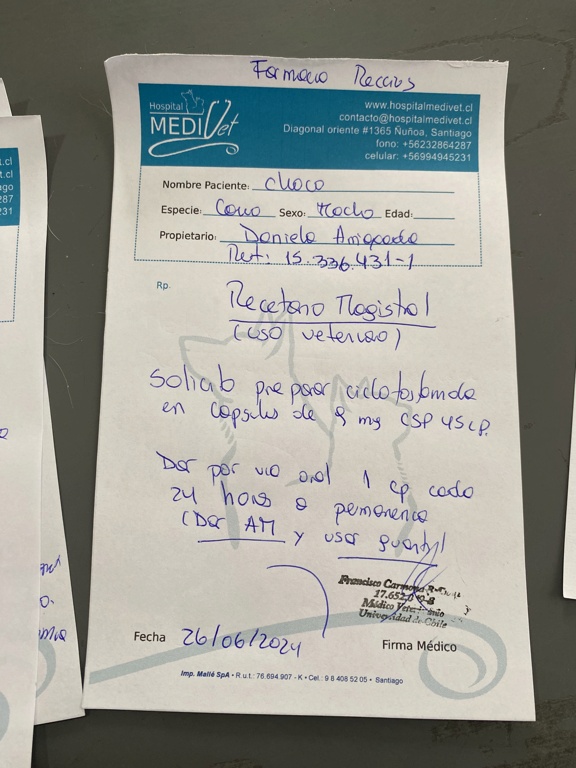 Farmacia Reccius
Hospital
MEDIVet
www.hospitalmedivet.cl
contacto@hospitalmedivet.cl
Diagonal oriente #1365 Ñuñoa, Santiago
fono: +56232864287
celular: +56994945231
Nombre Paciente: Choco
Especie: Cano Sexo: Macho Edad:
Propietario: Daniela
Rut: 15.336.431-1
Rp.
Recetario Magistral
(uso veterinario)
Solicito preparar ciclofosfamida
en capsulas de 9 mg CSP 45 cp.
Dar por via oral 1 cp cada
24 horas a permanencia
(Dar AM y usar guantes)
Francisco Carmona
17.652.
Médico Veterinario
Universidad de Chile
Fecha 26/06/2024
Firma Médico
Imp. Mallé SpA • R u.t.: 76.694.907 - K • Cel.: 9 8 408 52 05 • Santiago
t.cl
t.cl
ago
287
231